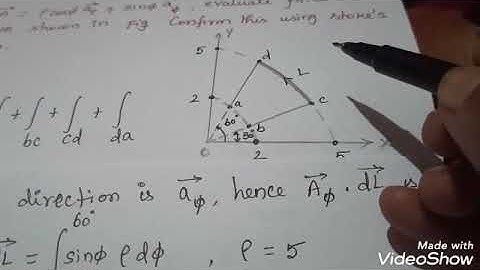 = ρcosφ a⃗ρ + sinφ a⃗φ, evaluate
shown in Fig. Confirm this using stoke's
Y
5
d
L
2
a
c
60°
b
30°
0
2
5
X
∫ + ∫ + ∫ + ∫
bc cd da
direction is a⃗φ, hence A⃗φ · dL⃗ is
60°
L⃗ = ∫ sinφ ρ dφ , ρ = 5
Made with
VideoShow